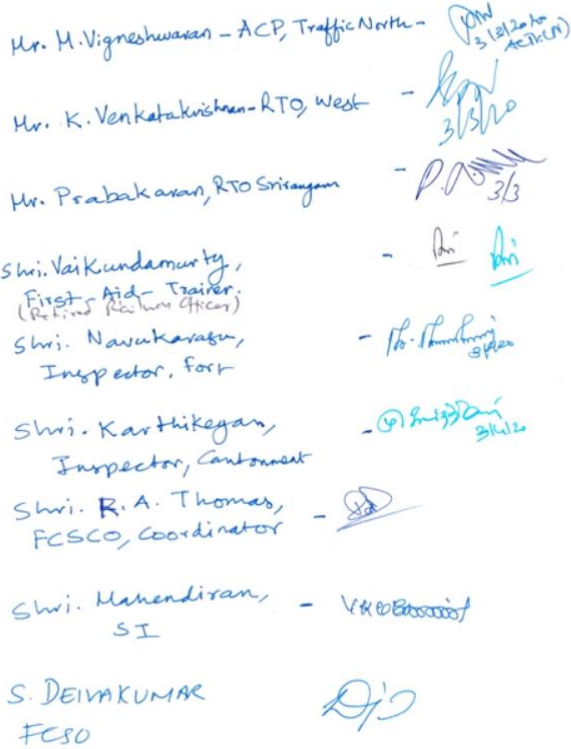 Mr. M. Vigneshwaran - ACP, Traffic North -
3/3/2020
ACTR(N)
Mr. K. Venkatakrishnan - RTO, West -
3/3/20
Mr. Prabakaran, RTO Srirangam -
3/3
Shri. Vaikundamurty, -
First-Aid-Trainer.
(Retired Railway Officer)
Shri. Navukarasu, -
Inspector, Fort
Shri. Karthikeyan, -
Inspector, Cantonment
Shri. R. A. Thomas, -
FCSCO, Coordinator
Shri. Mahendiran, -
SI
S. DEIVAKUMAR
FCSO